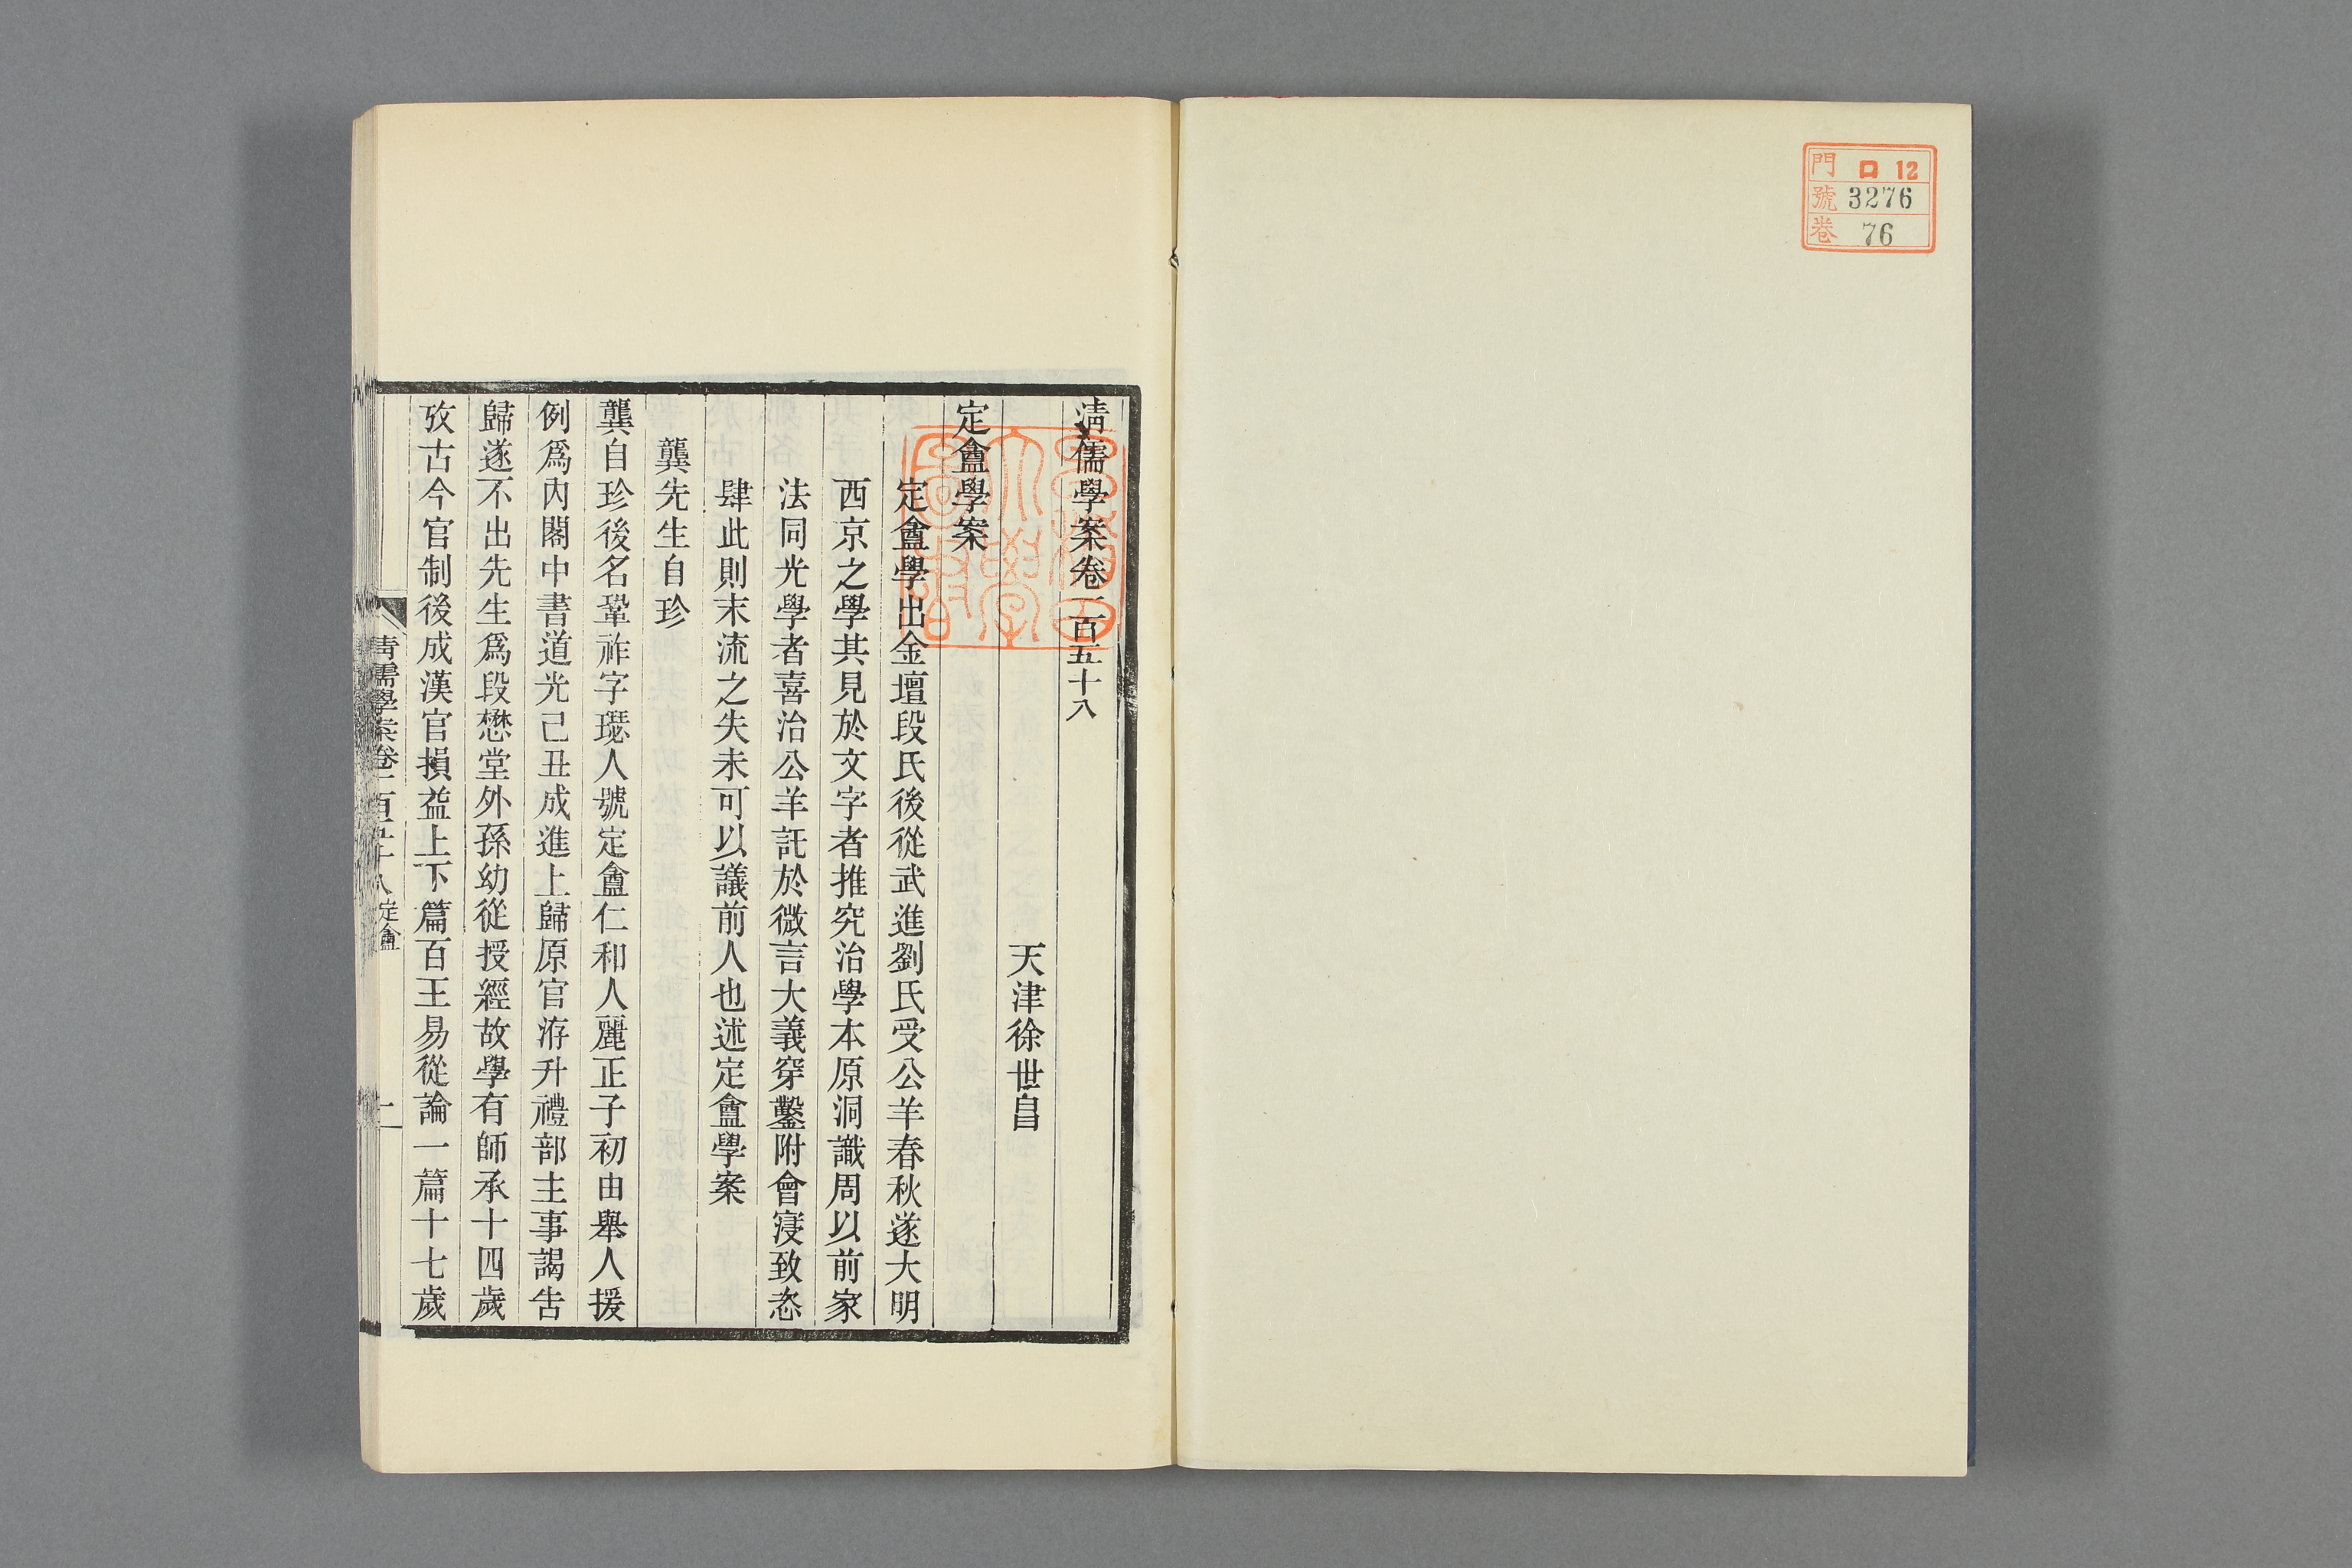 門 ロ 12
號 3276
卷 76
清儒學案卷一百五十八
天津徐世昌
定盦學案
定盦學出金壇段氏後從武進劉氏受公羊春秋遂大明
西京之學其見於文字者推究治學本原洞識周以前家
法同光學者喜治公羊託於微言大義穿鑿附會寖致恣
肆此則末流之失未可以議前人也述定盦學案
龔先生自珍
龔自珍後名鞏祚字璱人號定盦仁和人麗正子初由舉人援
例爲內閣中書道光己丑成進士歸原官洊升禮部主事謁告
歸遂不出先生爲段懋堂外孫幼從授經故學有師承十四歲
攷古今官制後成漢官損益上下篇百王易從論一篇十七歲
清儒學案卷一百五十八 定盦
一